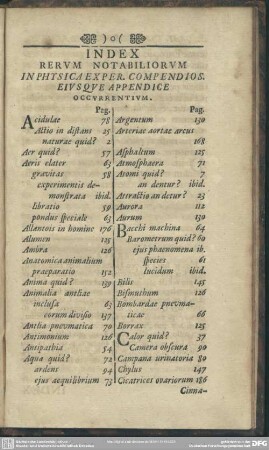 )o(
INDEX
RERVM NOTABILIORVM
IN PHYSICA EXPER. COMPENDIOS.
EIVSQVE APPENDICE
OCCVRRENTIVM.
Pag.
Acidulae 78
Actio in distans 25
naturae quid? 2
Aer quid? 57
Aeris elater 65
gravitas 58
experimentis de-
monstrata ibid.
libratio 59
pondus speciale 63
Allantois in homine 176
Alumen 125
Ambra 126
Anatomica animalium
praeparatio 152
Anima quid? 139
Animalia antliae
inclusa 63
eorum divisio 137
Antlia pneumatica 70
Antimonium 126
Antipathia 54
Aqua quid? 72
ardens 94
ejus aequilibrium 73
Pag.
Argentum 130
Arteriae aortae arcus
168
Asphaltum 125
Atmosphaera 71
Atomi quid? 7
an dentur? ibid.
Attractio an detur? 23
Aurora 112
Aurum 130
Bacchi machina 64
Barometrum quid? 60
ejus phaenomena ib.
species 61
lucidum ibid.
Bilis 145
Bismuthum 126
Bombardae pnevma-
ticae 66
Borrax 125
Calor quid? 37
Camera obscura 90
Campana urinatoria 80
Chylus 147
Cicatrices ovariorum 186
Cinna-